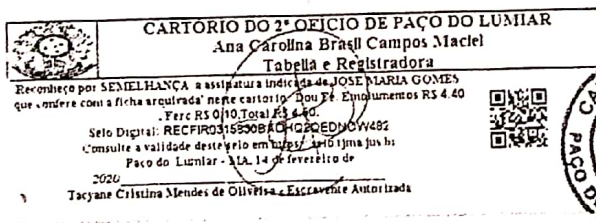 CARTÓRIO DO 2º OFÍCIO DE PAÇO DO LUMIAR
Ana Carolina Brasil Campos Maciel
Tabeliã e Registradora
Reconheço por SEMELHANÇA a assinatura indicada de JOSE MARIA GOMES
que confere com a ficha arquivada neste cartório. Dou Fé. Emolumentos R$ 4.40
. Ferc R$ 0,10. Total R$
Selo Digital:
Consulte a validade deste selo em
Paço do Lumiar - MA, 14 de fevereiro de
2020
Tacyane Cristina Mendes de Oliveira - Escrevente Autorizada
PAÇO D